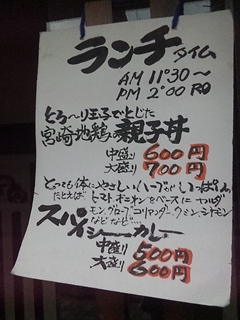 ランチタイム
AM 11°30～
PM 2°00
とろ～り玉子でとじた
宮崎地鶏親子丼
中盛り 600円
大盛り 700円
とっても体にやさしいハーブがいっぱい
たとえば、トマト、オニオンをベースに
モン、グローブ、コリアンダー、クミン、シナモン
などなど…
スパイシーカレー
中盛り 500円
大盛り 600円